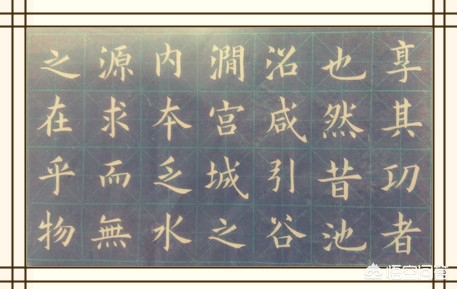 享其功者
也然昔池
沼咸引谷
澗宫城之
内本乏水
源求而無
之在乎物
悟空问答